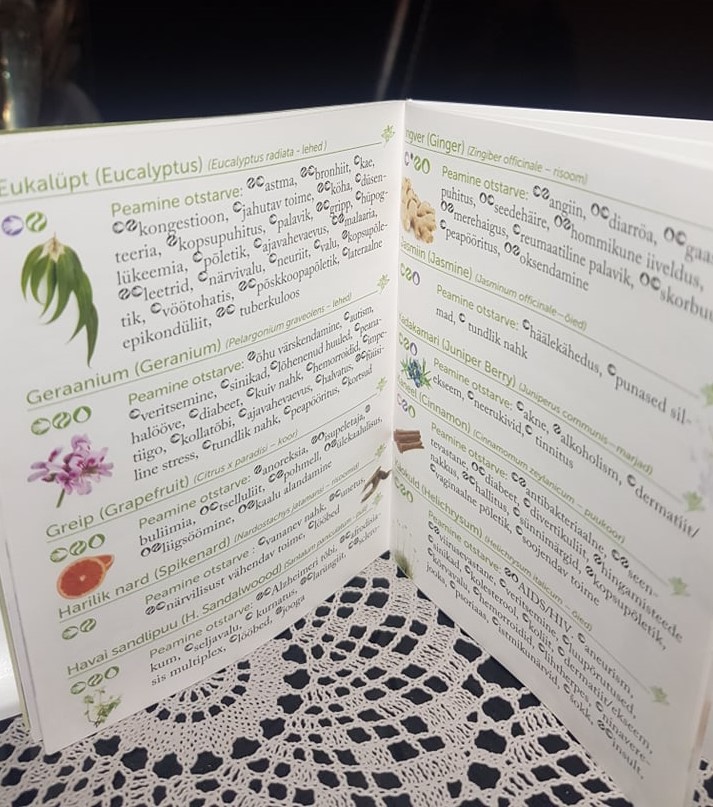 Eukalüpt (Eucalyptus) (Eucalyptus radiata - lehed)
Peamine otstarve: astma, bronhiit, kae,
kongestioon, jahutav toime, köha, düsen-
teeria, kopsupuhitus, palavik, gripp, hüpog-
lükeemia, põletik, ajavahevaevus, malaaria,
leetrid, närvivalu, neuriit, valu, kopsupõle-
tik, vöötohatis, põskkoopapõletik, lateraalne
epikondüliit, tuberkuloos
Geraanium (Geranium) (Pelargonium graveolens - lehed)
Peamine otstarve: õhu värskendamine, autism,
veritsemine, sinikad, lõhenenud huuled, peana-
halööve, diabeet, kuiv nahk, hemorroidid, impe-
tiigo, kollatõbi, ajavahevaevus, halvatus, füüsi-
line stress, tundlik nahk, peapööritus, kortsud
Greip (Grapefruit) (Citrus x paradisi – koor)
Peamine otstarve: anoreksia, supeletaja,
buliimia, tselluliit, pohmell, ülekaalulisus,
liigsöömine, kaalu alandamine
Harilik nard (Spikenard) (Nardostachys jatamansi - risoomid)
Peamine otstarve: vananev nahk,
närvilisust vähendav toime, lööbed
Havai sandlipuu (H. Sandalwoood) (Santalum paniculatum
Peamine otstarve: Alzheimeri tõbi,
kum, seljavalu, kurnatus, larüngiit,
sis multiplex, lööbed, jooga
ngver (Ginger) (Zingiber officinale – risoom)
Peamine otstarve: angiin, diarröa, gaa
puhitus, seedehäire, hommikune iiveldus,
merehaigus, reumaatiline palavik, skorbu
peapööritus, oksendamine
Jasmiin (Jasmine) (Jasminum officinale–õied)
Peamine otstarve: häälekähedus, punased sil-
mad, tundlik nahk
Kadakamari (Juniper Berry) (Juniperus communis–marjad)
Peamine otstarve: akne, alkoholism, dermatiit/
ekseem, neerukivid, tinnitus
Kaneel (Cinnamon) (Cinnamomum zeylanicum – puukoor)
Peamine otstarve: antibakteriaalne, seen-
levastane, diabeet, divertikuliit, hingamisteede
nakkus, hallitus, sünnimärgid, kopsupõletik,
vaginaalne põletik, soojendav toime
(Helichrysum) (Helichrysum italicum – õied)
Peamine otstarve: AIDS/HIV, aneurism,
viirusevastane, veritsemine, luupõrutused,
sinikad, kolesterool, koliit, dermatiit/ekseem,
kõrvavalu, hemorroidid, lihtherpes, ninavere-
jooks, psoriaas, istmikunärvid, šokk, insult,